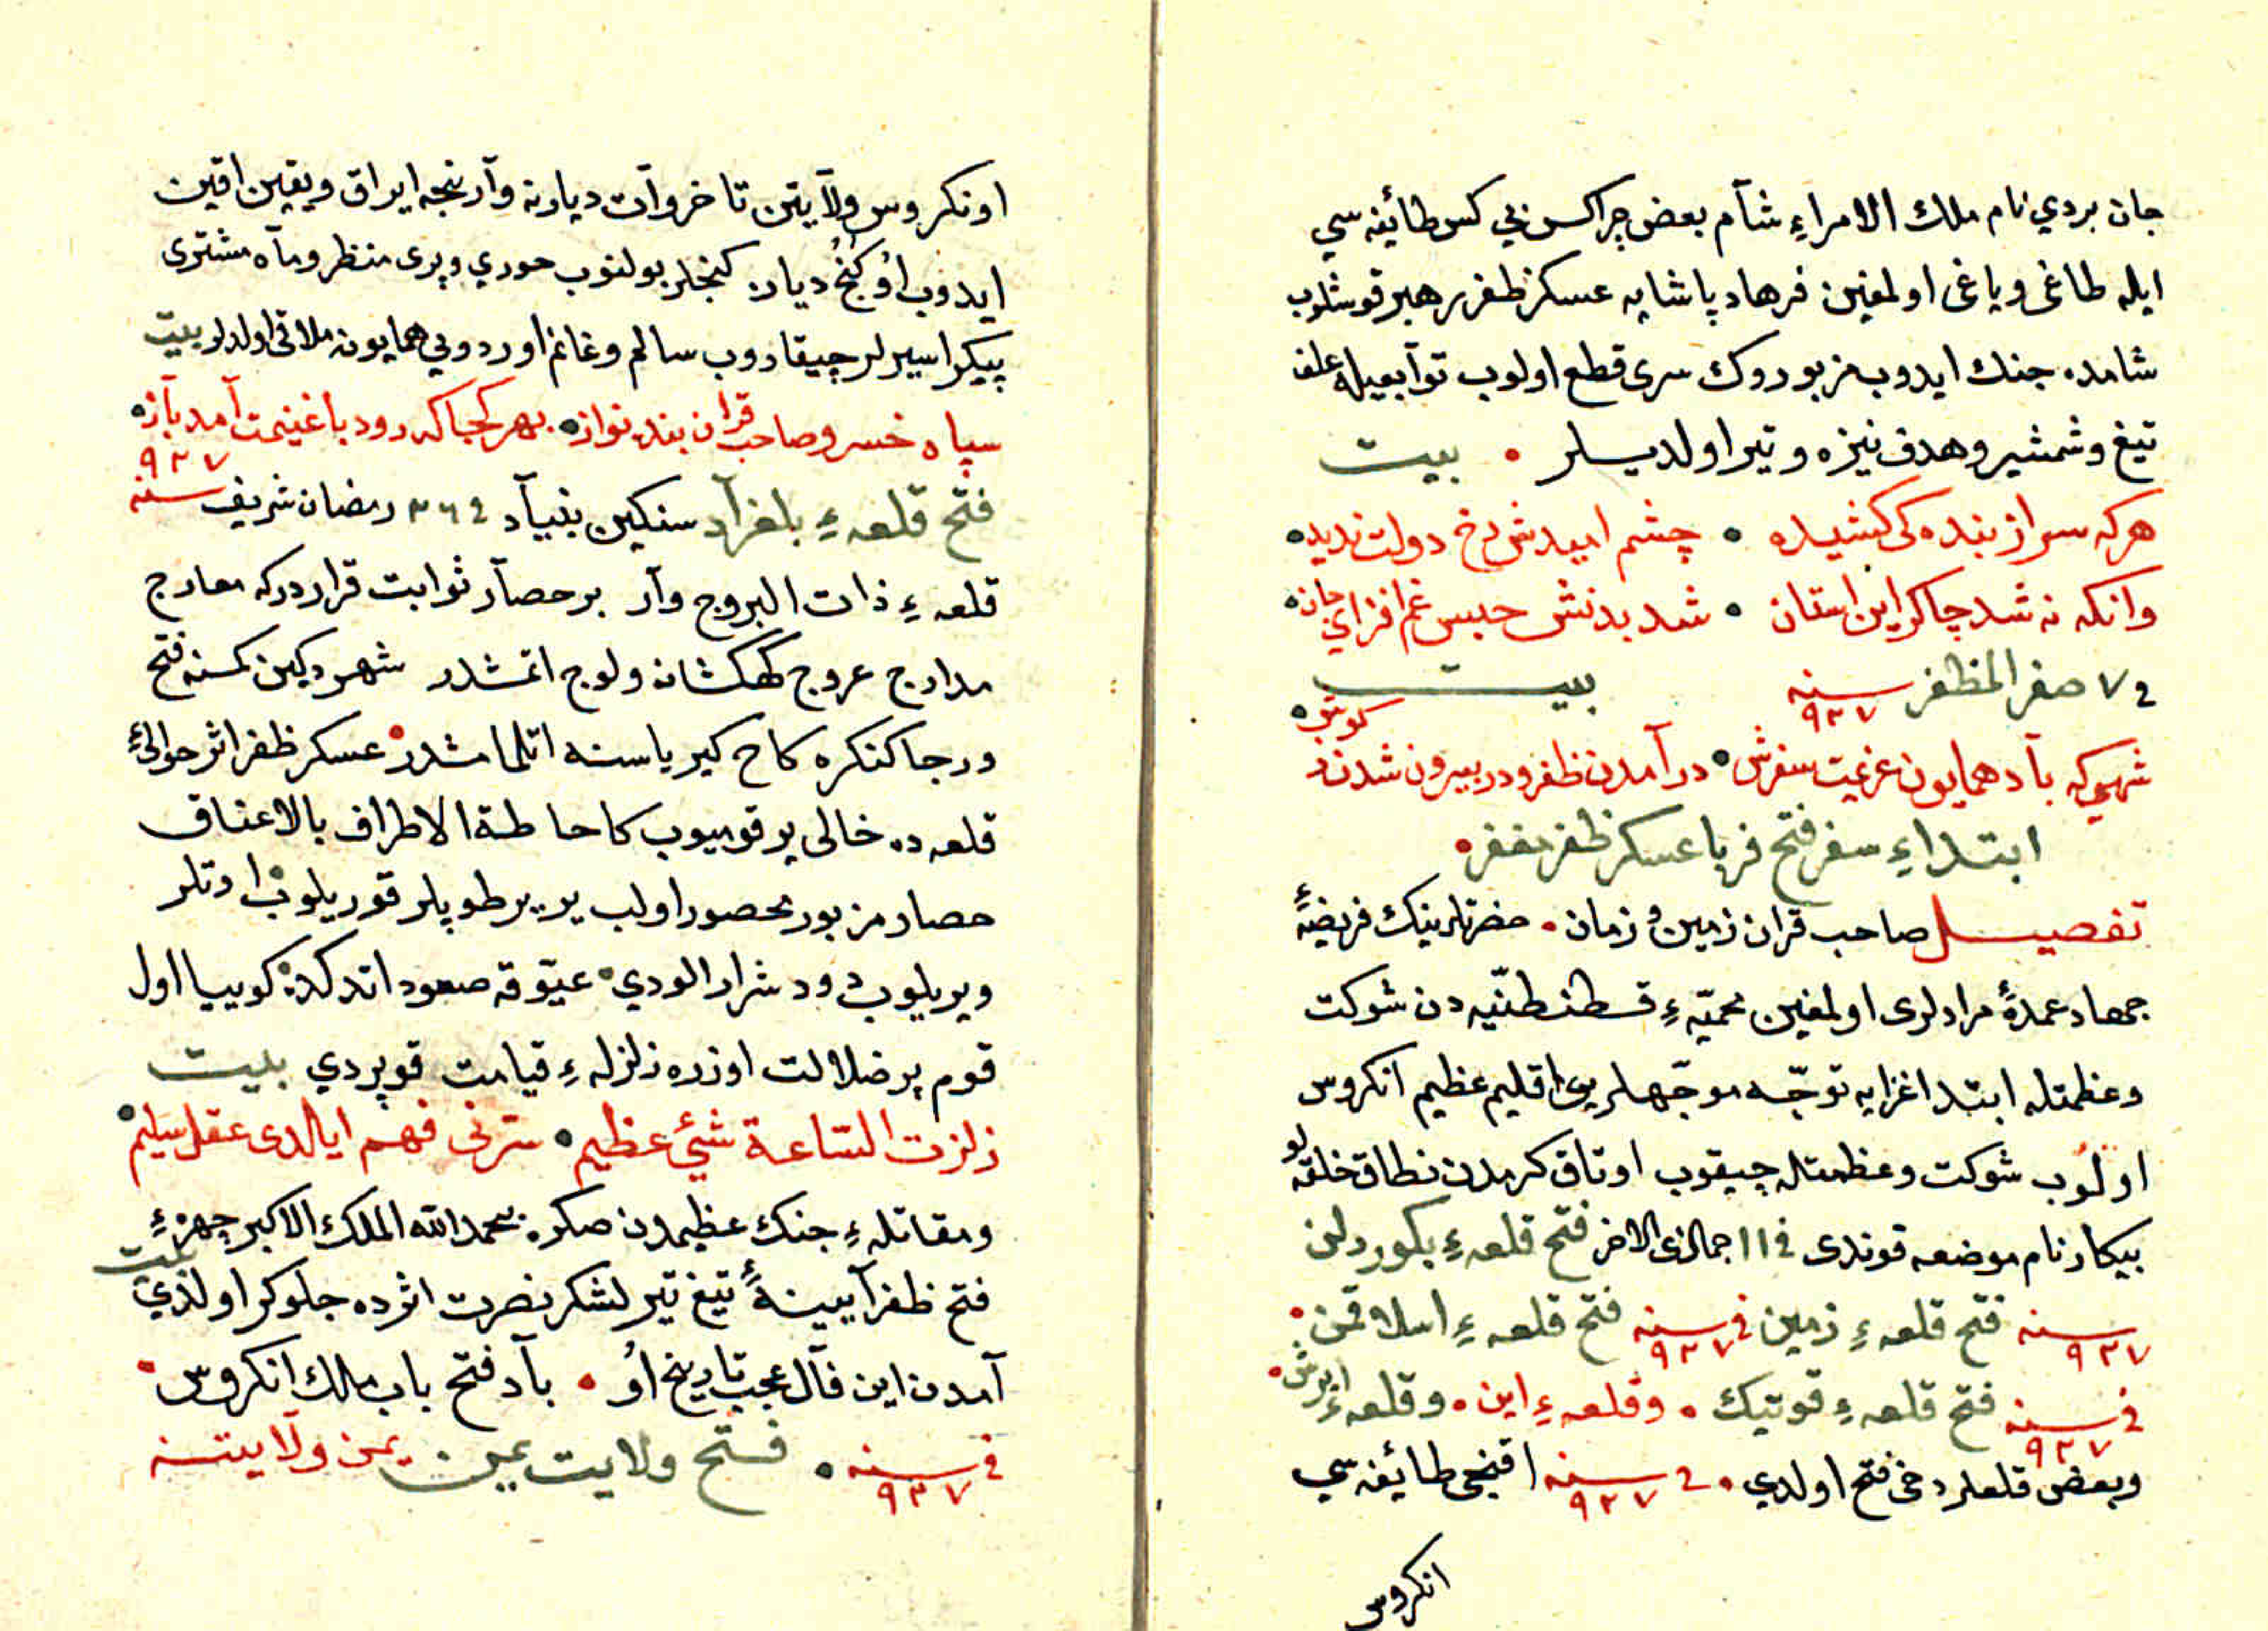 جان بردي نام ملك الامراءِ شآم بعض چراكس بي كس طائيفه سي
ايله طاغى وياغى اولمغين فرهاد پاشايه عسكر ظفر رهبر قوشلوب
شامده جنك ايدوب مزبوروك سرى قطع اولوب توآبعيله علف
تيغ وشمشير وهدف نيزه وتير اولديلر • بيت
هركه سر از بنده كى كشيده • چشم اميدش رخ دولت نديده
وانكه نه شد چاكر اين استان • شد بدنش حبس غم افزاي جان
في ٧ صفر المظفر سنه ٩٢٧ بيت
شهى كه بآد همايون عزيمت سفرش • در آمدن ظفر ودر بيرون شدن
ابتداءِ سفر فتح فربا عسكر ظفر مفر •
تفصيل صاحب قران زمين و زمان • حضرتلرينك فريضهٔ
جهاد عمدهٔ مرادلرى اولمغين محميّه ءِ قسطنطنيّه دن شوكت
وعظمتله ابتدا غزايه توجّه موجّهلريى اقليم عظيم انكروس
اولوب شوكت وعظمتله چيقوب اوتاق كرمدن نطاق خلقه لو
بيكار نام موضعه قوندى في ١١ جمالذى الاخر فتح قلعه ءِ بكوردلن
سنه ٩٢٧ فتح قلعه ءِ زمين في سنه ٩٢٧ فتح قلعه ءِ اسلاقمن •
في سنه ٩٢٧ فتح قلعه ءِ قوتيك • وقلعه ءِ اين • وقلعه ءِ ايرش •
وبعض قلعلر دخى فتح اولدي • في سنه ٩٢٧ اقنجى طائيفه سي
انكروس
اونكروس ولآيتن تا خروآت ديارنه وآرنجه ايراق ويقين اقين
ايدوب اُو كُنجُ ديارن كنجلر بولنوب حوري وپرى منظر ومآه مشترى
پيكر اسيرلر چيقاروب سالم وغانم اوردويي همايونه ملاقى اولدلر بيت
سپاه خسرو صاحب قران بنده نواز • بهر كجا كه رود با غنيمت آمد بآز
فتح قلعه ءِ بلغرآد سنكين بنيآد في ٢٦ رمضان شريف سنه ٩٢٧
قلعه ءِ ذات البروج وآر بر حصآر ثوابت قراردركه معارج
مدارج عروج كهكشانه ولوج اتمشدر شهر دكين كمسنه فتح
ورجا كنكره كاح كيرياسنه اتلمامشدر • عسكر ظفر اثر حوالئ
قلعه ده خالى ير قوميوب كاحاطة الاطراف بالاعناق
حصار مزبور محصور اولب ير ير طوپلر قوريلوب اوتلر
ويريلوب دود شرار الودي عيّوقه صعود اتدكده كوييا اول
قوم پر ضلالت اوزره زلزله ءِ قيامت قوپردي بيت
زلزت الساعة شئي عظيم • سترنى فهم ايالدى عقل سليم
ومقاتله ءِ جنك عظيمدن صكره بحمد الله الملك الاكبر چهره ءِ
فتح ظفر آيينهٔ تيغ تير لشكر نصرت اثرده جلوكر اولدي بيت
آمدن اين فآل عجب تاريخ اُو • بآد فتح باب مالك انكروس •
في سنه ٩٢٧ • فتح ولايت يمن يمن ولآيتنه